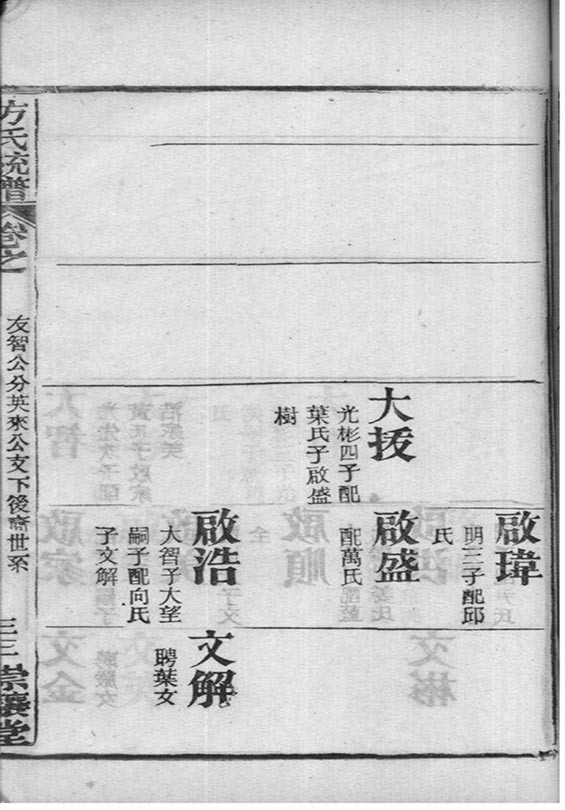 大授
光彬四子配
葉氏子啟盛
樹
啟瑋
明三子配邱
氏
啟盛
配萬氏
啟浩
大智子大望
嗣子配向氏
子文解
文解
聘葉女
方氏統譜
卷之
友智公分英來公支下後裔世系
三三
堂